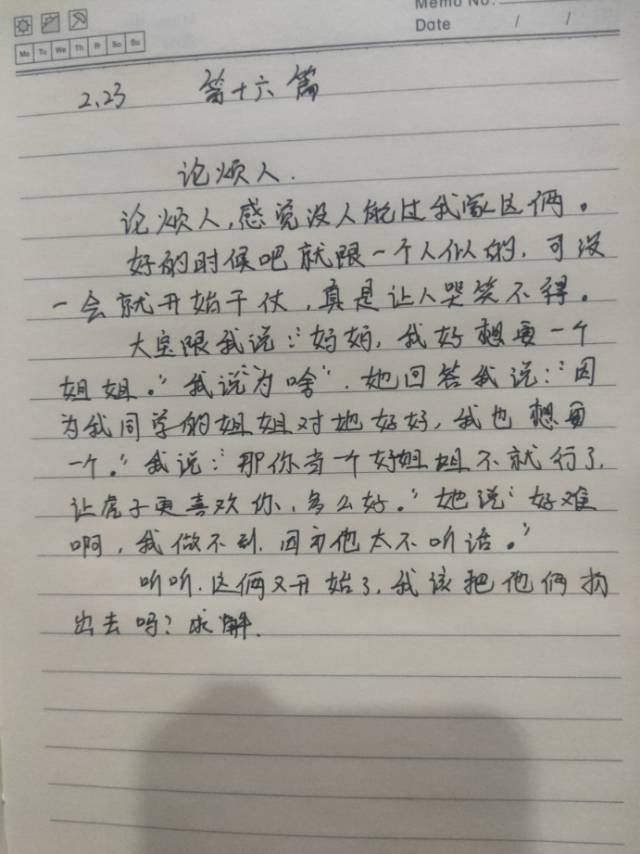 Memo No.
Date / /
Mo Tu We Th Fr Sa Su
2.23 第十六篇
论烦人.
论烦人,感觉没人能过我家这俩。
好的时候吧就跟一个人似的,可没
一会就开始干仗,真是让人哭笑不得。
大宝跟我说:“妈妈,我好想要一个
姐姐。”我说“为啥”.她回答我说:“因
为我同学的姐姐对她好好,我也想要
一个。”我说:“那你当一个好姐姐不就行了,
让虎子更喜欢你,多么好。”她说“好难
啊,我做不到.因为他太不听话。”
听听.这俩又开始了,我该把他们扔
出去吗?求解.